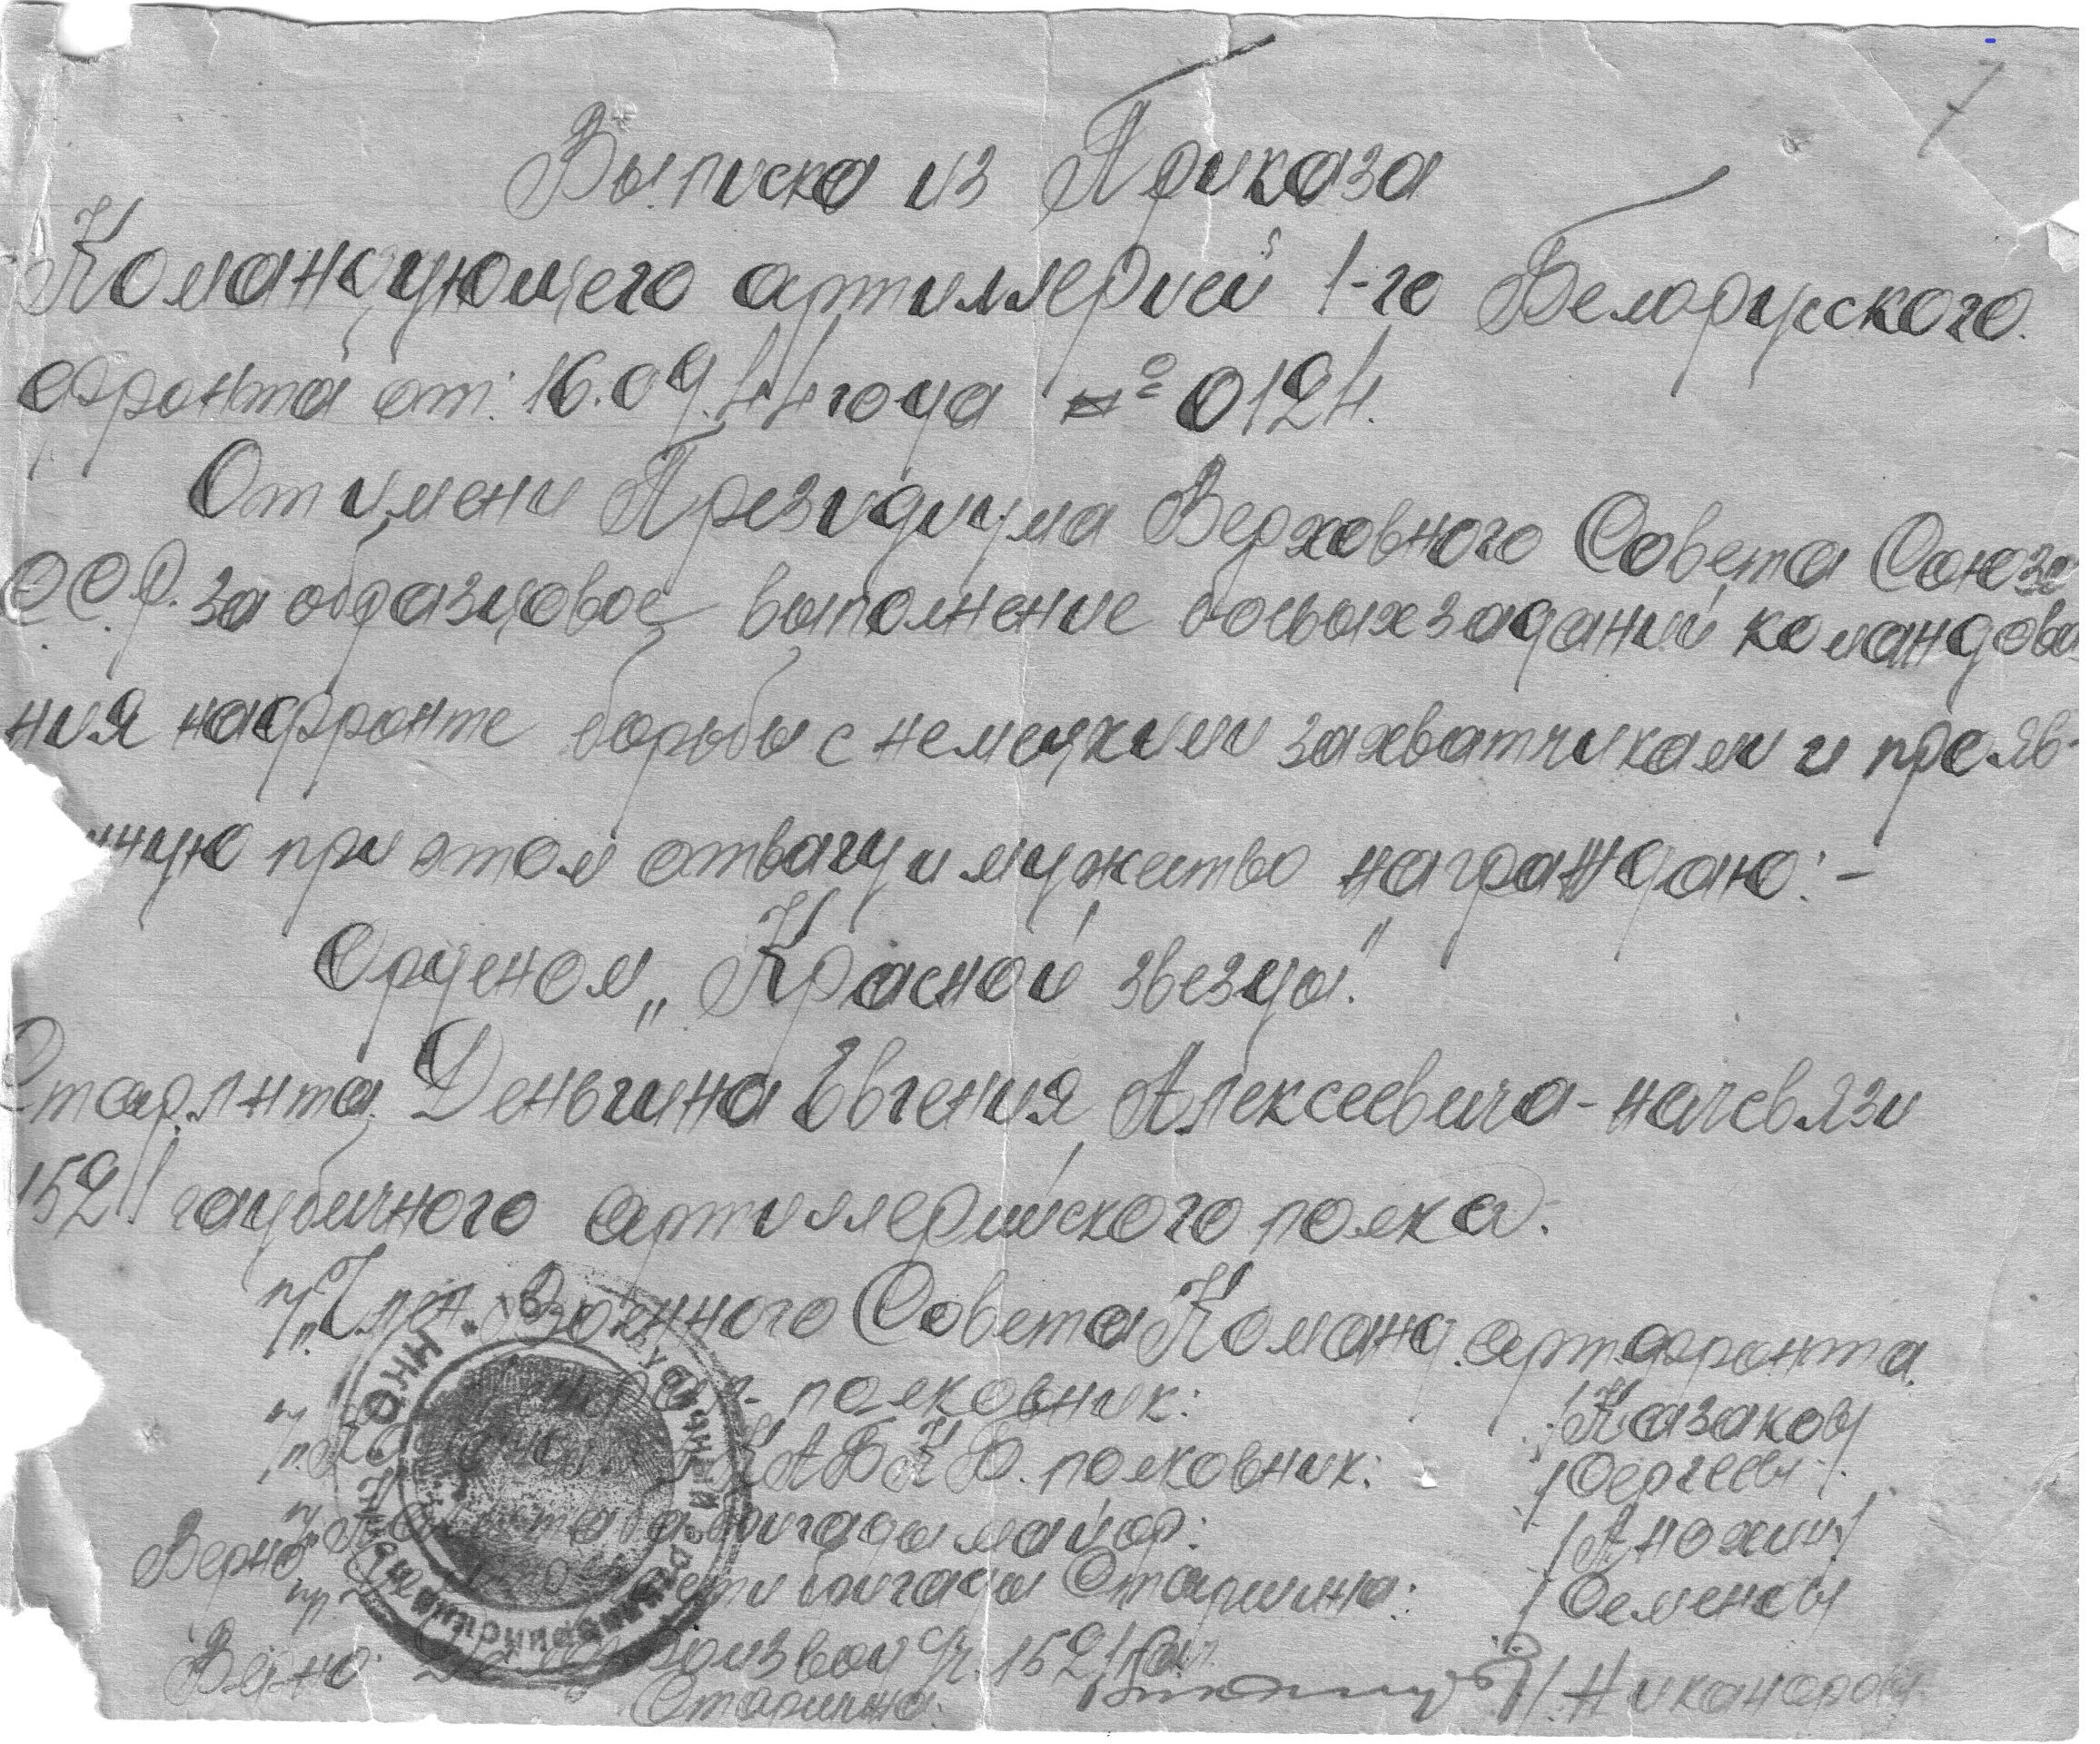 7
Выписка из Приказа
Командующего артиллерией 1-го Белорусского
фронта от: 16.09.44 года № 0124.
От имени Президиума Верховного Совета Союза
С.С.Р. за образцовое выполнение боевых заданий командова-
ния на фронте борьбы с немецкими захватчиками и прояв-
нную при этом отвагу и мужество награждаю:-
Орденом „Красной звезды".
Стар. л-нта Деньгина Евгения Алексеевича - нач связи
1521 гаубичного артиллерийского полка.
п/п. Член Военного Совета Команд. арт. фронта.
полковник: /Казаков/
п/п. полковник: /Сергеев/.
Верно: штаба бригады майор: /Анохин/
п/п. части бригады Старшина: /Семенов/
Верно: 1521
Старшина: /Никаноров/